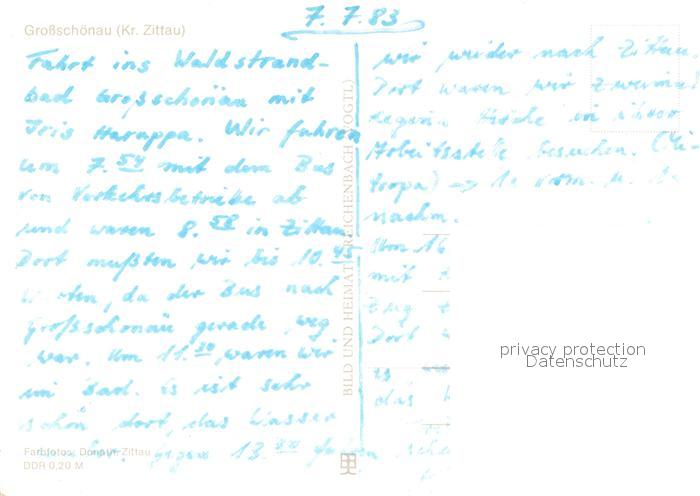 7. 7. 83
Großschönau (Kr. Zittau)
Fahrt ins Waldstrand-
bad Großschönau mit
Iris Haruppa. Wir fuhren
um 7.54 mit dem Bus
von Verkehrsbetriebe ab
und waren 8.58 in Zittau
Dort mußten wir bis 10.45
warten, da der Bus nach
Großschönau gerade weg
war. Um 11.30 waren wir
im Bad. Es ist sehr
schön dort, das Wasser
gegen 13.
Farbfotos: Donath, Zittau
DDR 0,20 M
BILD UND HEIMAT REICHENBACH (VOGTL)
wir wieder nach Zittau.
Dort waren wir zweimal
Regina in ihrer
Arbeitsstelle besuchen. (Mi-
tropa) → 1. vorm. u. 1.
nachm.
Um 16
mit
Zug
Dort
es
das
privacy protection
Datenschutz